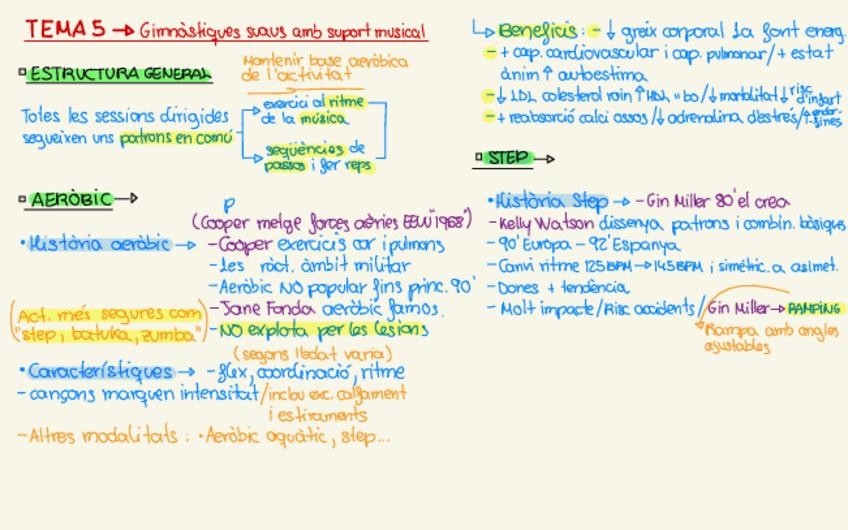 TEMA 5 → Gimnàstiques suaus amb suport musical
ESTRUCTURA GENERAL
Mantenir base aeròbica
de l'activitat
Totes les sessions dirigides
segueixen uns patrons en comú
exercici al ritme
de la música
seqüències de
passos i fer reps
AERÒBIC →
P
(Cooper metge forces aèries EEUU "1968")
• Història aeròbic → - Cooper exercicis cor i pulmons
- Les ròct. àmbit militar
- Aeròbic NO popular fins princ. 90'
- Jane Fonda aeròbic famós.
- NO explota per les lesions
(Act. més segures com
"step, batuka, zumba")
(segons l'edat varia)
• Característiques → - flex, coordinació, ritme
- cançons marquen intensitat / inclou exc. calfament
i estiraments
- Altres modalitats : • Aeròbic aquàtic, step...
↳ Beneficis : - ↓ greix corporal 1a font energ.
- + cap. cardiovascular i cap. pulmonar / + estat
ànim ↑ autoestima
- ↓ LDL colesterol roin ↑ HDL "bo / ↓ morbilitat ↓ risc d'infart
- + reabsorció calci ossos / ↓ adrenalina d'estrés / ↑ endorfines
STEP →
• Història Step → - Gin Miller 80' el crea
- Kelly Watson dissenya patrons i combin. bàsiques
- 90' Europa - 92' Espanya
- Canvi ritme 125BPM → 145BPM i simètric. a asimet.
- Dones + tendència
- Molt impacte / Risc accidents / Gin Miller → RAMPING
Rampa amb angles
ajustables